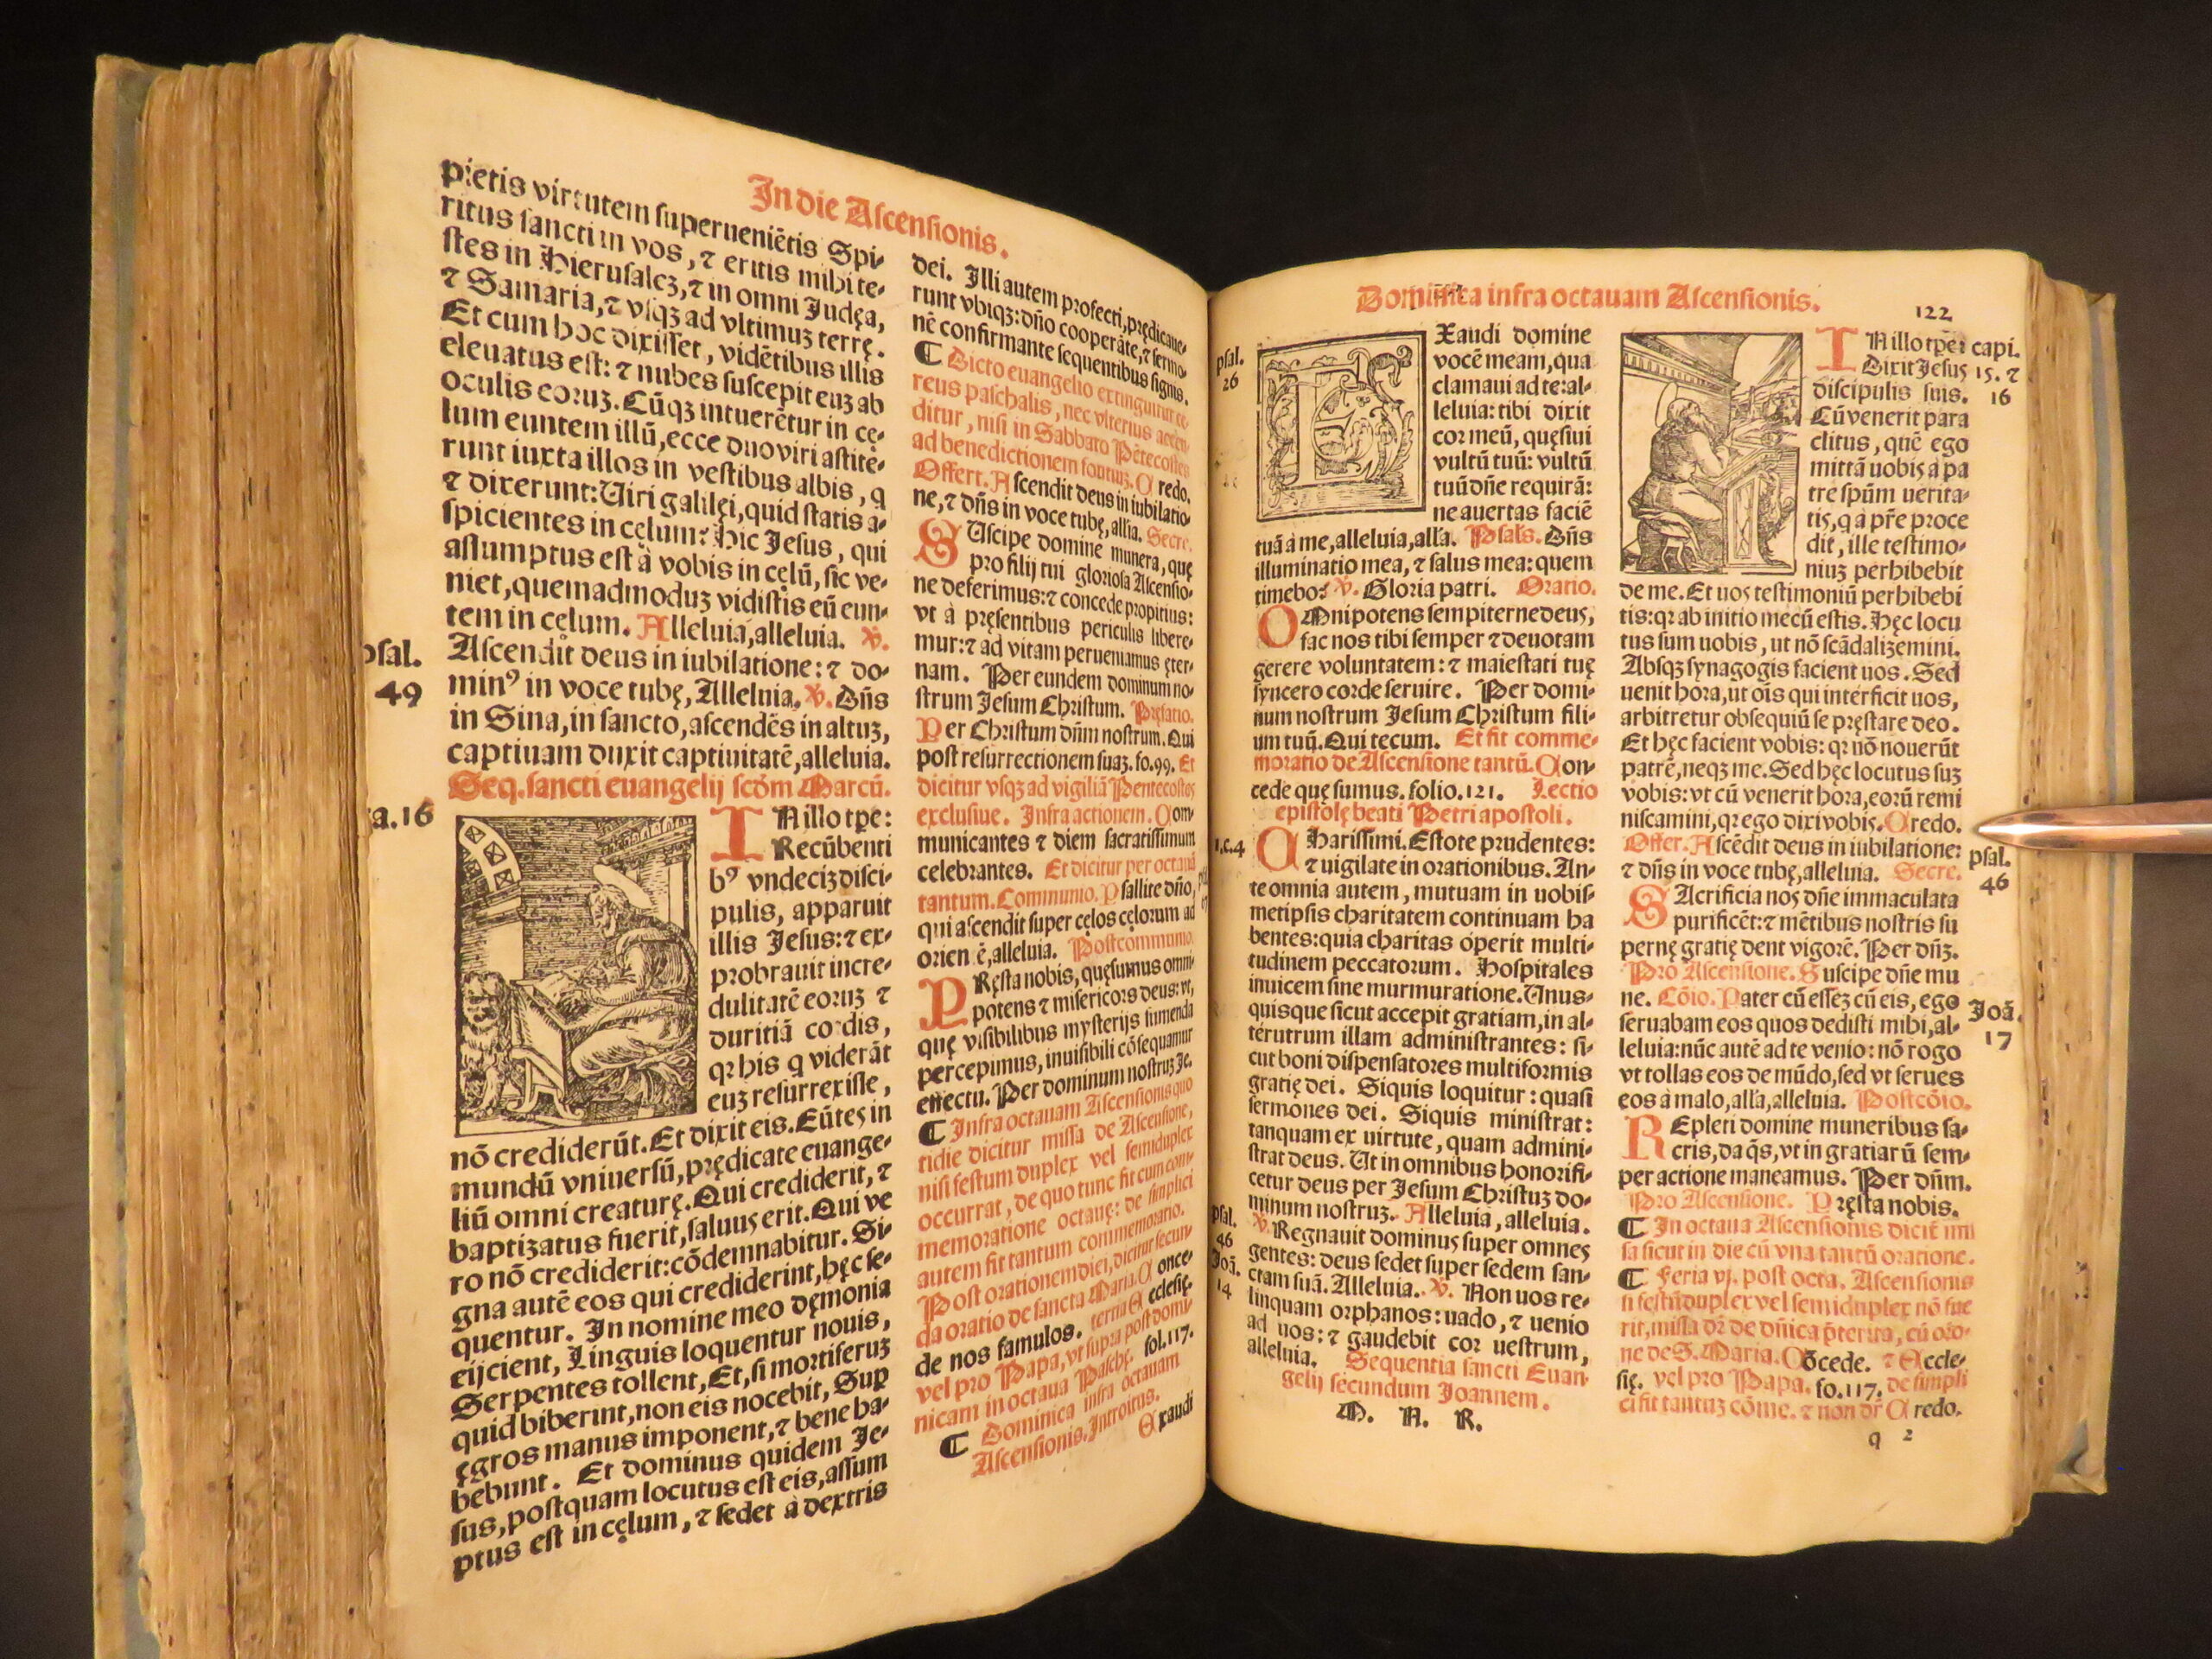 In die Ascensionis.
pietis virtutem superueniẽtis Spi-
ritus sancti in vos, ⁊ eritis mihi te-
stes in Hierusaleꝫ, ⁊ in omni Iudęa,
⁊ Samaria, ⁊ vsqꝫ ad vltimuꝫ terrę.
Et cum hoc dixisset, vidẽtibus illis
eleuatus est: ⁊ nubes suscepit euꝫ ab
oculis eoruꝫ. Cũqꝫ intuerẽtur in cę-
lum euntem illũ, ecce duo viri astite-
runt iuxta illos in vestibus albis, q
⁊ dixerunt: Uiri galilęi, quid statis a-
spicientes in cęlum? Hic Jesus, qui
assumptus est à vobis in cęlũ, sic ve-
niet, quemadmoduꝫ vidistis eũ eun-
tem in cęlum. Alleluia, alleluia. ℣.
psal. 49
Ascendit deus in iubilatione: ⁊ do-
minꝰ in voce tubę, Alleluia. ℣. Dñs
in Sina, in sancto, ascendẽs in altuꝫ,
captiuam duxit captiuitatẽ, alleluia.
Seq. sancti euangelij scḋm Marcũ.
ca. 16
IN illo tpe:
Recũbenti
bꝰ vndeciꝫ disci-
pulis, apparuit
illis Jesus: ⁊ ex-
probrauit incre-
dulitatẽ eoruꝫ ⁊
duritiã cordis,
qꝛ his q viderãt
euꝫ resurrexisse,
nõ crediderũt. Et dixit eis. Eũtes in
mundũ vniuersũ, prędicate euange-
liũ omni creaturę. Qui crediderit, ⁊
baptizatus fuerit, saluus erit. Qui ve
ro nõ crediderit: cõdemnabitur. Si-
gna autẽ eos qui crediderint, hęc se-
quentur. In nomine meo dęmonia
eijcient, Linguis loquentur nouis,
Serpentes tollent, Et, si mortiferuꝫ
quid biberint, non eis nocebit, Sup
ęgros manus imponent, ⁊ bene ha-
bebunt. Et dominus quidem Je-
sus, postquam locutus est eis, assum
ptus est in cęlum, ⁊ sedet à dextris
dei. Illi autem profecti, prędicaue-
runt vbiqꝫ: dño cooperãte, ⁊ sermo-
nẽ confirmante sequentibus signis.
¶ Dicto euangelio extinguitur ce-
reus paschalis, nec vlterius accen-
ditur, nisi in Sabbato Pẽtecostes
ad benedictionem fontiuꝫ. Credo.
Offert. Ascendit deus in iubilatio-
ne, ⁊ dñs in voce tubę, allĩa. Secre.
SUscipe domine munera, quę
pro filij tui gloriosa Ascensio-
ne deferimus: ⁊ concede propitius:
vt à pręsentibus periculis libere-
mur: ⁊ ad vitam perueniamus ęter-
nam. Per eundem dominum no-
strum Jesum Christum. Pręfatio.
Per Christum dñm nostrum. Qui
post resurrectionem suaꝫ. fo. 99. Et
dicitur vsqꝫ ad vigiliã Pentecostes
exclusiue. Infra actionem. Com-
municantes ⁊ diem sacratissimum
celebrantes. Et dicitur per octauã
tantum. Communio. Psallite dño,
qui ascendit super cęlos cęlorum ad
orien ẽ, alleluia. Postcommunio.
PRęsta nobis, quęsumus omni-
potens ⁊ misericors deus: vt,
quę visibilibus mysterijs sumenda
percepimus, inuisibili cõsequamur
effectu. Per dominum nostruꝫ Je.
¶ Infra octauam Ascensionis quo
tidie dicitur missa de Ascensione,
nisi festum duplex vel semiduplex
occurrat, de quo tunc fit cum com-
memoratione octauę: de simplici
autem fit tantum commemoratio.
Post orationem diei, dicitur secun-
da oratio de sancta Maria. Conce-
de nos famulos. tertia Ecclesię.
vel pro Papa, vt supra post domi-
nicam in octaua Paschę. fol. 117.
¶ Dominica infra octauam
Ascensionis. Introitus.
Exaudi
Dominica infra octauam Ascensionis.
122
psal.
26
EXaudi domine
vocẽ meam, qua
clamaui ad te: al-
leluia: tibi dixit
cor meũ, quęsiui
vultũ tuũ: vultũ
tuũ dñe requirã:
ne auertas faciẽ
tuã à me, alleluia, allã. Psals. Dñs
illuminatio mea, ⁊ salus mea: quem
timebo? ℣. Gloria patri. Oratio.
OMnipotens sempiterne deus,
fac nos tibi semper ⁊ deuotam
gerere voluntatem: ⁊ maiestati tuę
syncero corde seruire. Per domi-
num nostrum Jesum Christum fili-
um tuũ. Qui tecum. Et fit comme-
moratio de Ascensione tantũ. Con-
cede quęsumus. folio. 121. Lectio
epistolę beati Petri apostoli.
1.c.4
CHarissimi. Estote prudentes:
⁊ uigilate in orationibus. An-
te omnia autem, mutuam in uobis-
metipsis charitatem continuam ha
bentes: quia charitas operit multi-
tudinem peccatorum. Hospitales
inuicem sine murmuratione. Unus-
quisque sicut accepit gratiam, in al-
terutrum illam administrantes: si-
cut boni dispensatores multiformis
gratię dei. Siquis loquitur: quasi
sermones dei. Siquis ministrat:
tanquam ex uirtute, quam admini-
strat deus. Ut in omnibus honorifi-
cetur deus per Jesum Christuꝫ do-
minum nostruꝫ. Alleluia, alleluia.
psal.
46
℣. Regnauit dominus super omnes
gentes: deus sedet super sedem san-
Joã.
14
ctam suã. Alleluia. ℣. Non uos re-
linquam orphanos: uado, ⁊ uenio
ad uos: ⁊ gaudebit cor uestrum,
alleluia. Sequentia sancti Euan-
gelij secundum Joannem.
M. A. R.
capi.
15. ⁊
16
IN illo tpe:
Dixit Jesus
discipulis suis.
Cũ venerit para
clitus, quẽ ego
mittã uobis à pa
tre spũm uerita-
tis, q à pr̃e proce
dit, ille testimo-
niuꝫ perhibebit
de me. Et uos testimoniũ perhibebi
tis: qꝛ ab initio mecũ estis. Hęc locu
tus sum uobis, ut nõ scãdalizemini.
Absqꝫ synagogis facient uos. Sed
uenit hora, ut oĩs qui interficit uos,
arbitretur obsequiũ se pręstare deo.
Et hęc facient vobis: qꝛ nõ nouerũt
patrẽ, neqꝫ me. Sed hęc locutus suꝫ
vobis: vt cũ venerit hora, eorũ remi
niscamini, qꝛ ego dixi vobis. Credo.
Offer. Ascẽdit deus in iubilatione:
psal.
46
⁊ dñs in voce tubę, alleluia. Secre.
SAcrificia nos dñe immaculata
purificẽt: ⁊ mẽtibus nostris su
pernę gratię dent vigorẽ. Per dñꝫ.
Pro Ascensione. Suscipe dñe mu
ne. Cõio. Pater cũ esseꝫ cũ eis, ego
Joã.
17
seruabam eos quos dedisti mihi, al-
leluia: nũc autẽ ad te venio: nõ rogo
vt tollas eos de mũdo, sed vt serues
eos à malo, allã, alleluia. Postcõio.
REpleti domine muneribus sa-
cris, da q̃s, vt in gratiarũ sem-
per actione maneamus. Per dũm.
Pro Ascensione. Pręsta nobis.
¶ In octaua Ascensionis dicit̃ mi
sa sicut in die cũ vna tantũ oratione.
¶ Feria vj. post octa. Ascensionis
si festũ duplex vel semiduplex nõ fue
rit, missa dr̃ de dñica p̃terita, cũ oro-
ne de S. Maria. Cõcede. ⁊ Eccle-
się. vel pro Papa. fo. 117. de simpli
ci fit tantuꝫ cõme. ⁊ non dr̃ Credo.
q 2